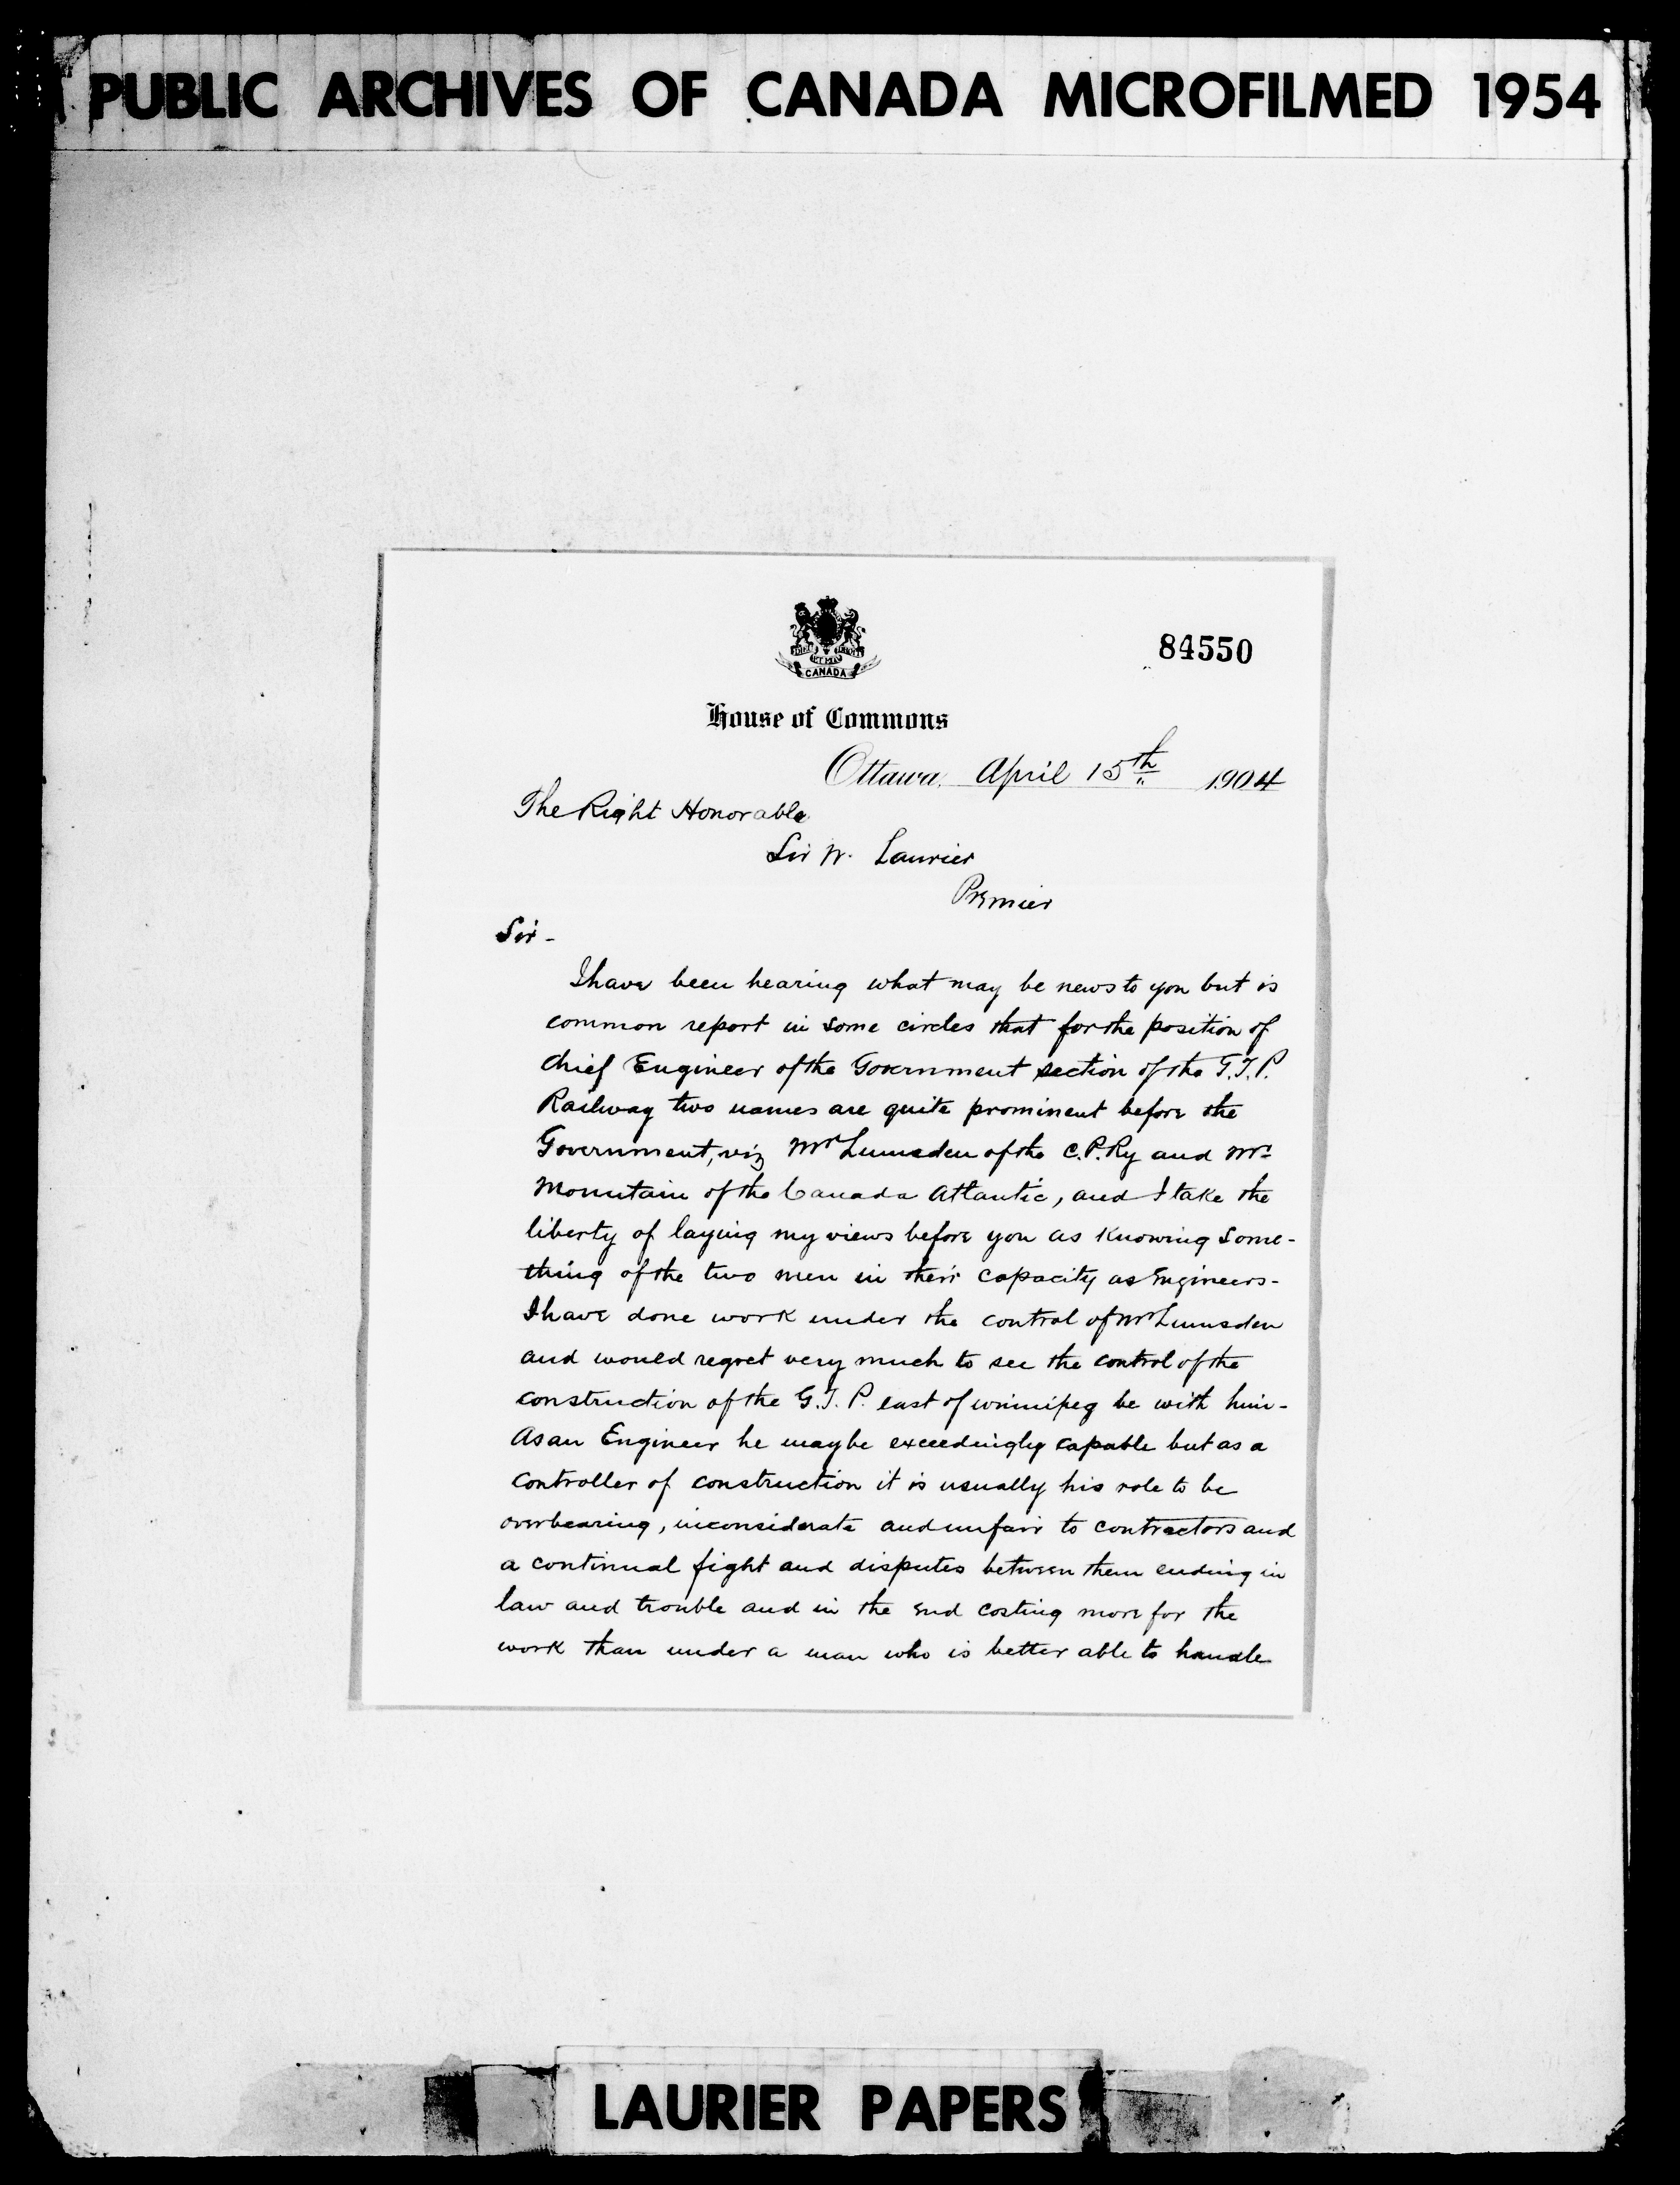 PUBLIC ARCHIVES OF CANADA MICROFILMED 1954
84550
DIEU DROIT
ET MON
CANADA
House of Commons
Ottawa, April 15th 1904
The Right Honorable
Sir W. Laurier
Premier
Sir -
I have been hearing what may be news to you but is
common report in some circles that for the position of
Chief Engineer of the Government section of the G.T.P.
Railway two names are quite prominent before the
Government, viz Mr Lumsden of the C.P.Ry and Mr
Mountain of the Canada Atlantic, and I take the
liberty of laying my views before you as knowing some-
thing of the two men in their capacity as Engineers -
I have done work under the control of Mr Lumsden
and would regret very much to see the control of the
construction of the G.T.P. east of Winnipeg be with him -
As an Engineer he may be exceedingly capable but as a
controller of construction it is usually his role to be
overbearing, inconsiderate and unfair to contractors and
a continual fight and disputes between them ending in
law and trouble and in the end costing more for the
work than under a man who is better able to handle
LAURIER PAPERS